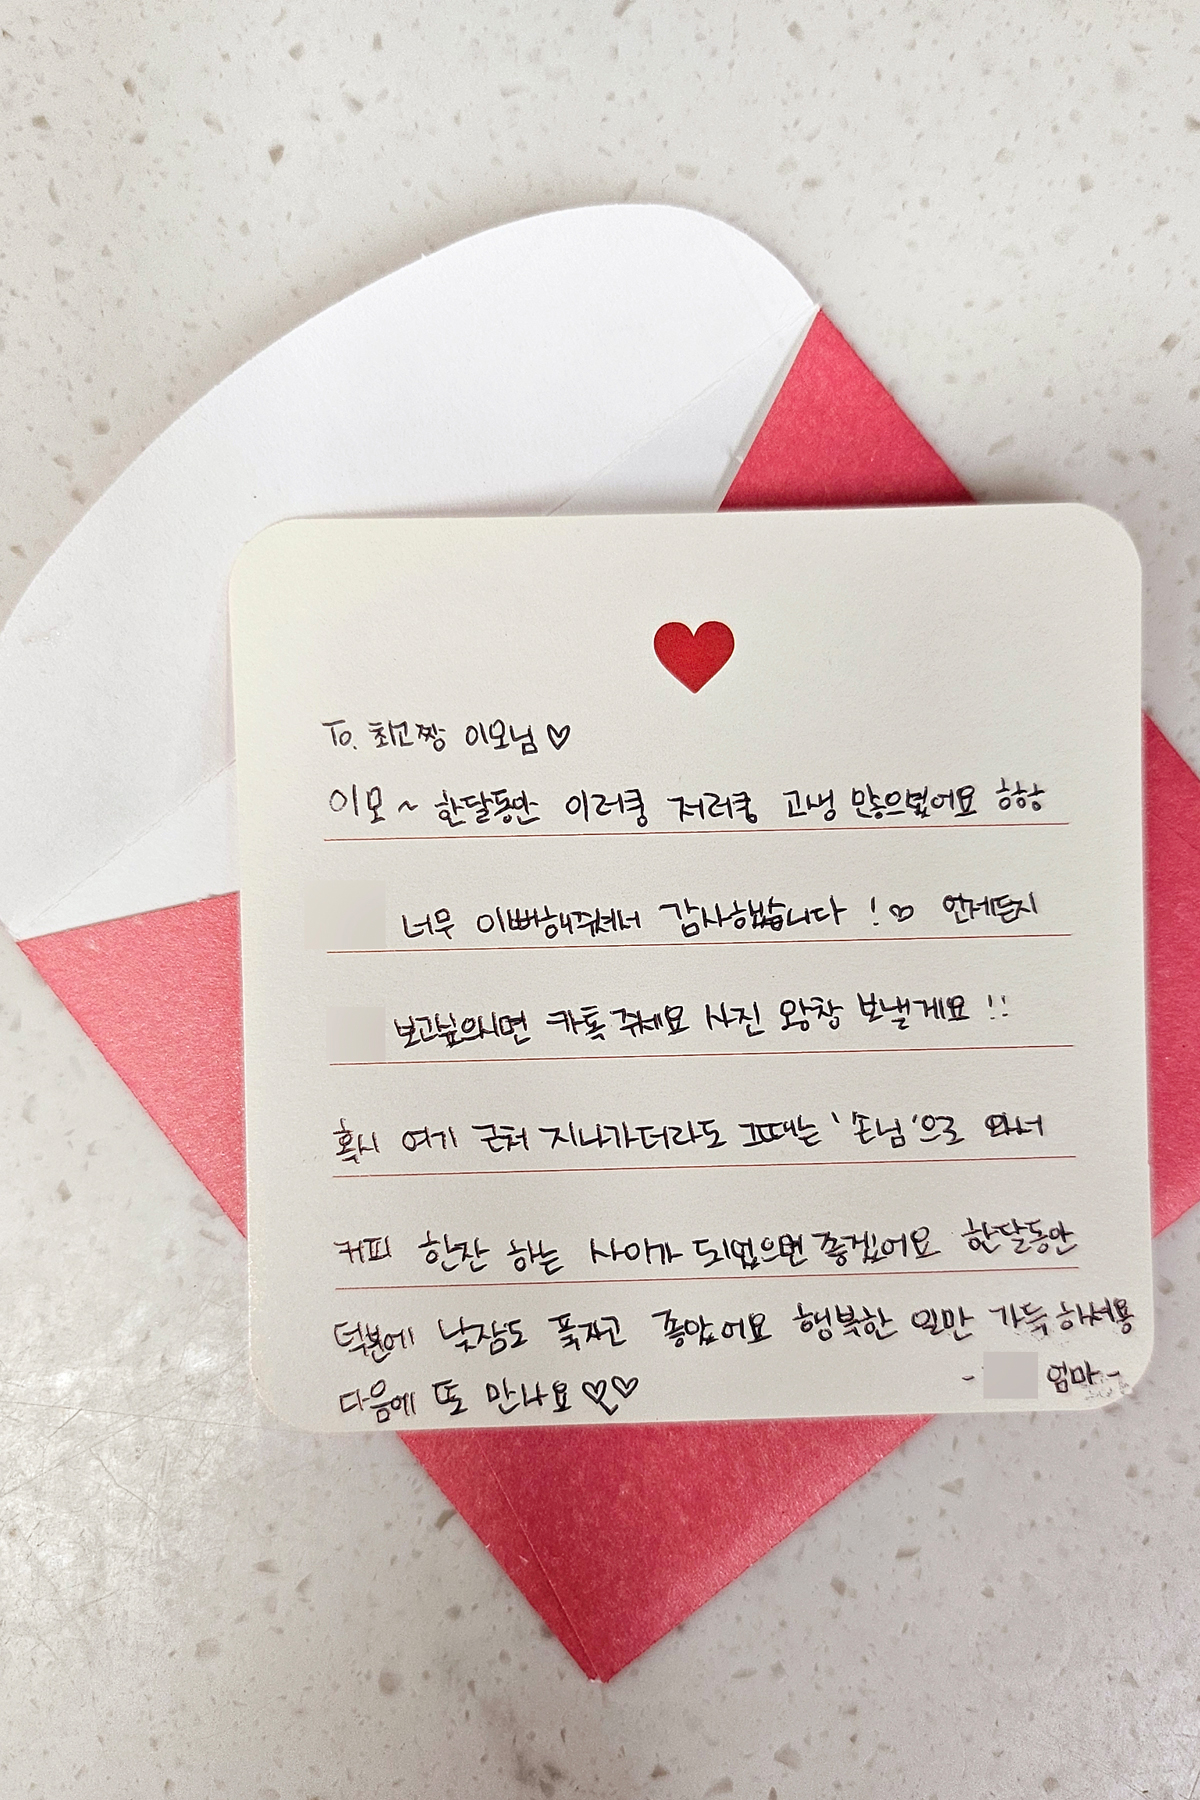 To. 최고짱 이모님♡
이모~ 한달동안 이러쿵 저러쿵 고생 많으셨어요 하하
너무 이뻐해주셔서 감사했습니다!♡ 언제든지
보고싶으시면 카톡주세요 사진 왕창 보낼게요!!
혹시 여기 근처 지나가더라도 그때는 '손님'으로 와서
커피 한잔 하는 사이가 되었으면 좋겠어요 한달동안
덕분에 낮잠도 푹자고 좋았어요 행복한 일만 가득하세용
다음에 또 만나요♡♡ - 엄마-